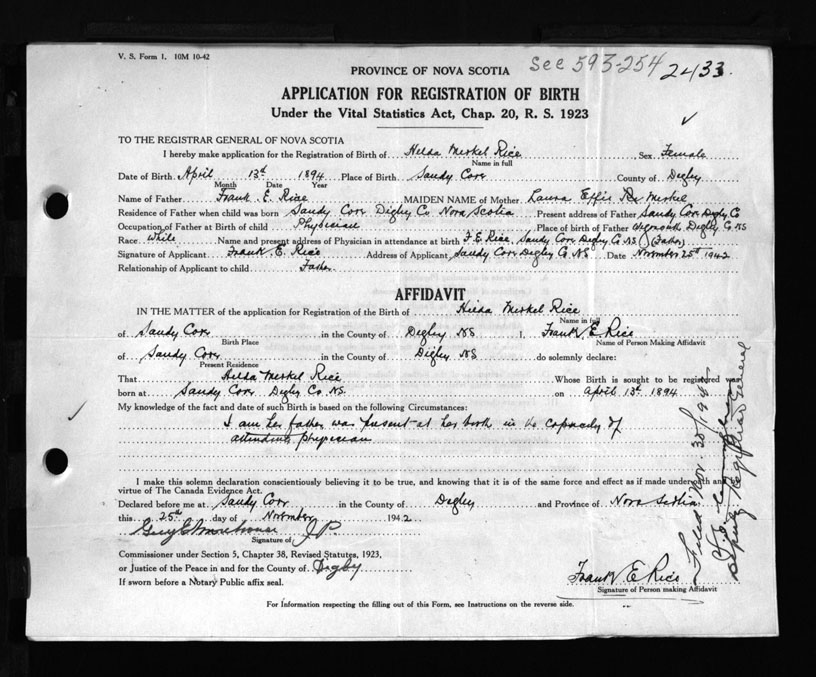 V. S. Form 1. 10M 10-42
See 593-254 2433.
PROVINCE OF NOVA SCOTIA
APPLICATION FOR REGISTRATION OF BIRTH
Under the Vital Statistics Act, Chap. 20, R. S. 1923
TO THE REGISTRAR GENERAL OF NOVA SCOTIA
I hereby make application for the Registration of Birth of Hilda Merkel Rice Sex Female
Name in full
Date of Birth April 13th 1894 Place of Birth Sandy Cove County of Digby
Month Date Year
Name of Father Frank E. Rice MAIDEN NAME of Mother Laura Effie Merkel
Residence of Father when child was born Sandy Cove Digby Co Nova Scotia Present address of Father Sandy Cove Digby Co
Occupation of Father at Birth of child Physician Place of birth of Father Weymouth Digby Co. NS
Race White Name and present address of Physician in attendance at birth F. E. Rice, Sandy Cove Digby Co NS (Father)
Signature of Applicant Frank. E. Rice Address of Applicant Sandy Cove Digby Co. NS. Date November 25th 1942
Relationship of Applicant to child Father
AFFIDAVIT
IN THE MATTER of the application for Registration of the Birth of Hilda Merkel Rice
Name in full
of Sandy Cove in the County of Digby NS I, Frank E Rice
Birth Place Name of Person Making Affidavit
of Sandy Cove in the County of Digby NS do solemnly declare:
Present Residence
That Hilda Merkel Rice Whose Birth is sought to be registered was
born at Sandy Cove Digby Co. NS. on April 13th 1894
My knowledge of the fact and date of such Birth is based on the following Circumstances:
I am her father was present at her birth in the capacity of
attending physician
I make this solemn declaration conscientiously believing it to be true, and knowing that it is of the same force and effect as if made under oath and
virtue of The Canada Evidence Act.
Declared before me at Sandy Cove in the County of Digby and Province of Nova Scotia
this 25th day of November 1942
J.P.
Signature of
Commissioner under Section 5, Chapter 38, Revised Statutes, 1923,
or Justice of the Peace in and for the County of Digby
If sworn before a Notary Public affix seal.
Frank E Rice
Signature of Person making Affidavit
For Information respecting the filling out of this Form, see Instructions on the reverse side.
Filed Nov. 30/1942
Deputy Registrar General